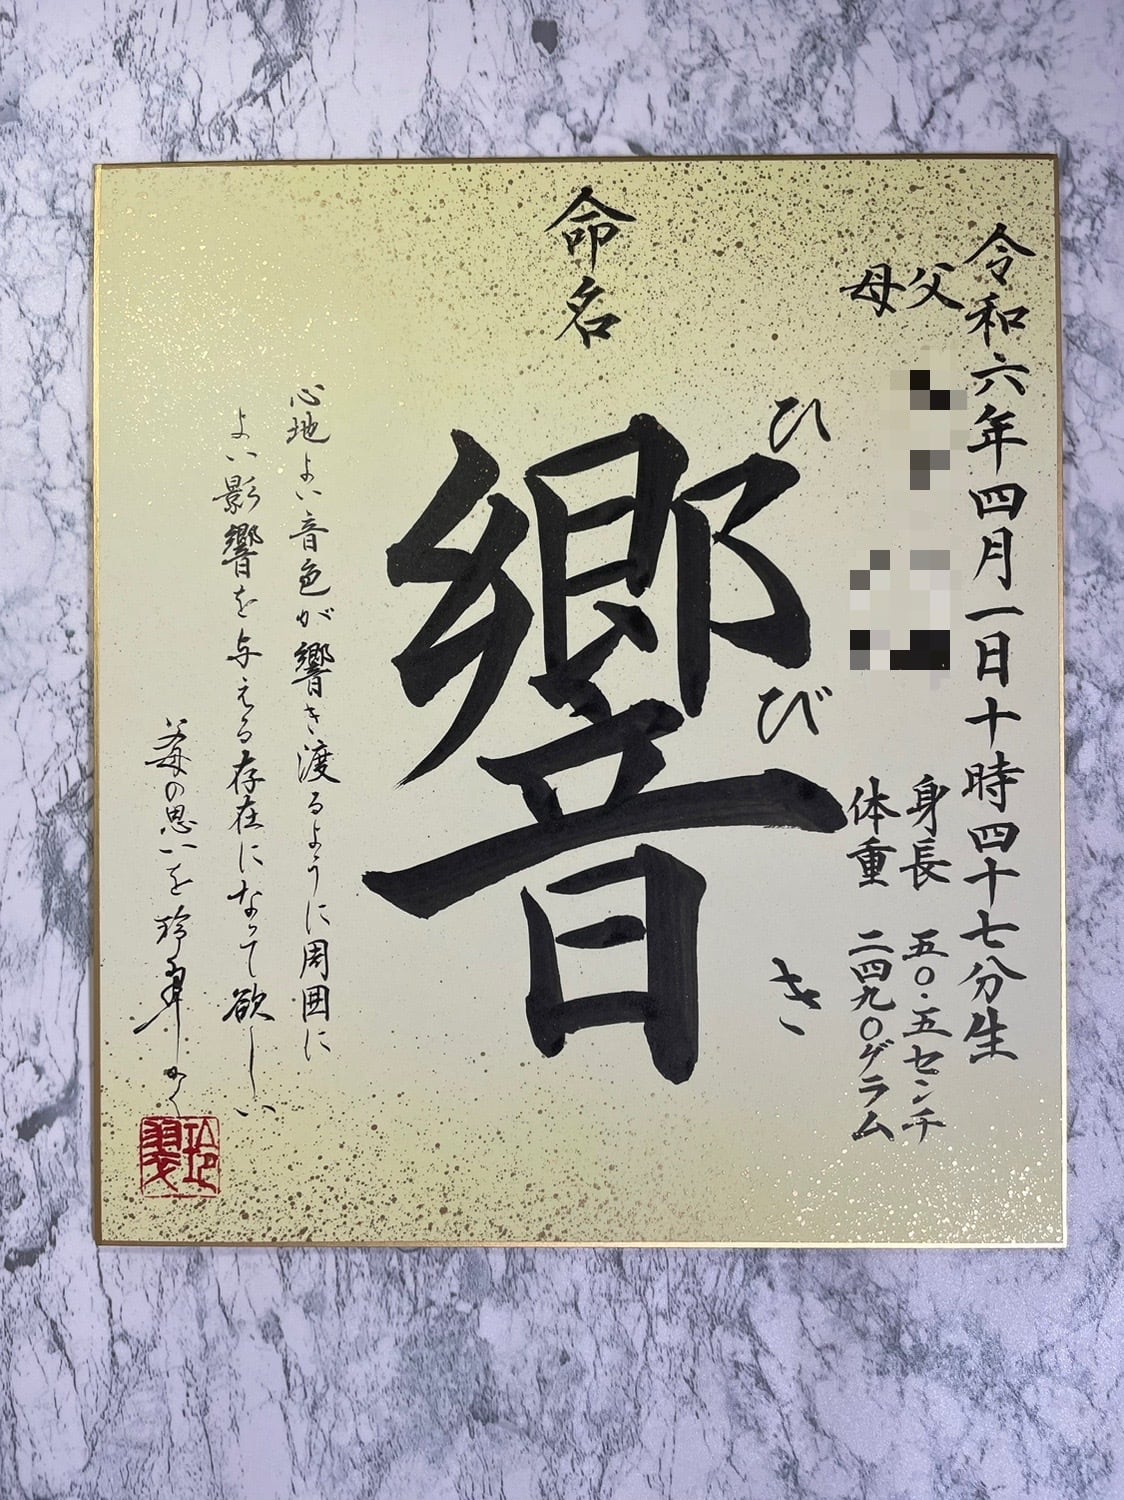 令和六年四月一日十時四十七分生
父
母
身長 五〇・五センチ
体重 二四九〇グラム
命名
響
ひびき
心地よい音色が響き渡るように周囲に
よい影響を与える存在になって欲しい
父母の思いを
玲翠